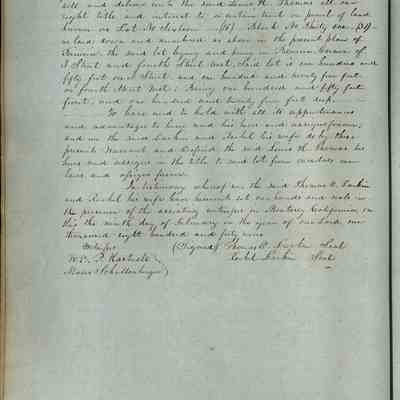 sell and deliver unto the said Lewis H. Thomas all our
right title and interest to a certain tract or parcel of land
known as Lot No eleven (11) Block No Thirty one (31)
as laid down and numbered as shown in the present plan of
Benicia, the said lot lying and being in Benicia Corner of
I Street and fourth Street West, Said lot is one hundred and
fifty feet on I Street, and one hundred and twenty five feet
on fourth Street West; Being one hundred and fifty feet
front, and one hundred and twenty five feet deep.
To have and to hold with all its appurtenances
and advantages to him and his heirs and assigns forever,
and we the said Larkin and Rachel his wife do by these
presents Warrant and Defend the said Lewis H. Thomas his
heirs and assigns in the title to said lot from ourselves our
heirs and assigns forever.
In testimony whereof we the said Thomas O. Larkin
and Rachel his wife have hereunto set our hands and seals in
the presence of the attesting witnesses in Monterey California, on
this the ninth day of February in the year of our Lord, one
thousand eight hundred and forty nine
Witness (Signed) Thomas O. Larkin Seal
W. E. P. Hartnell Rachel Larkin Seal
Moses Schallenberger